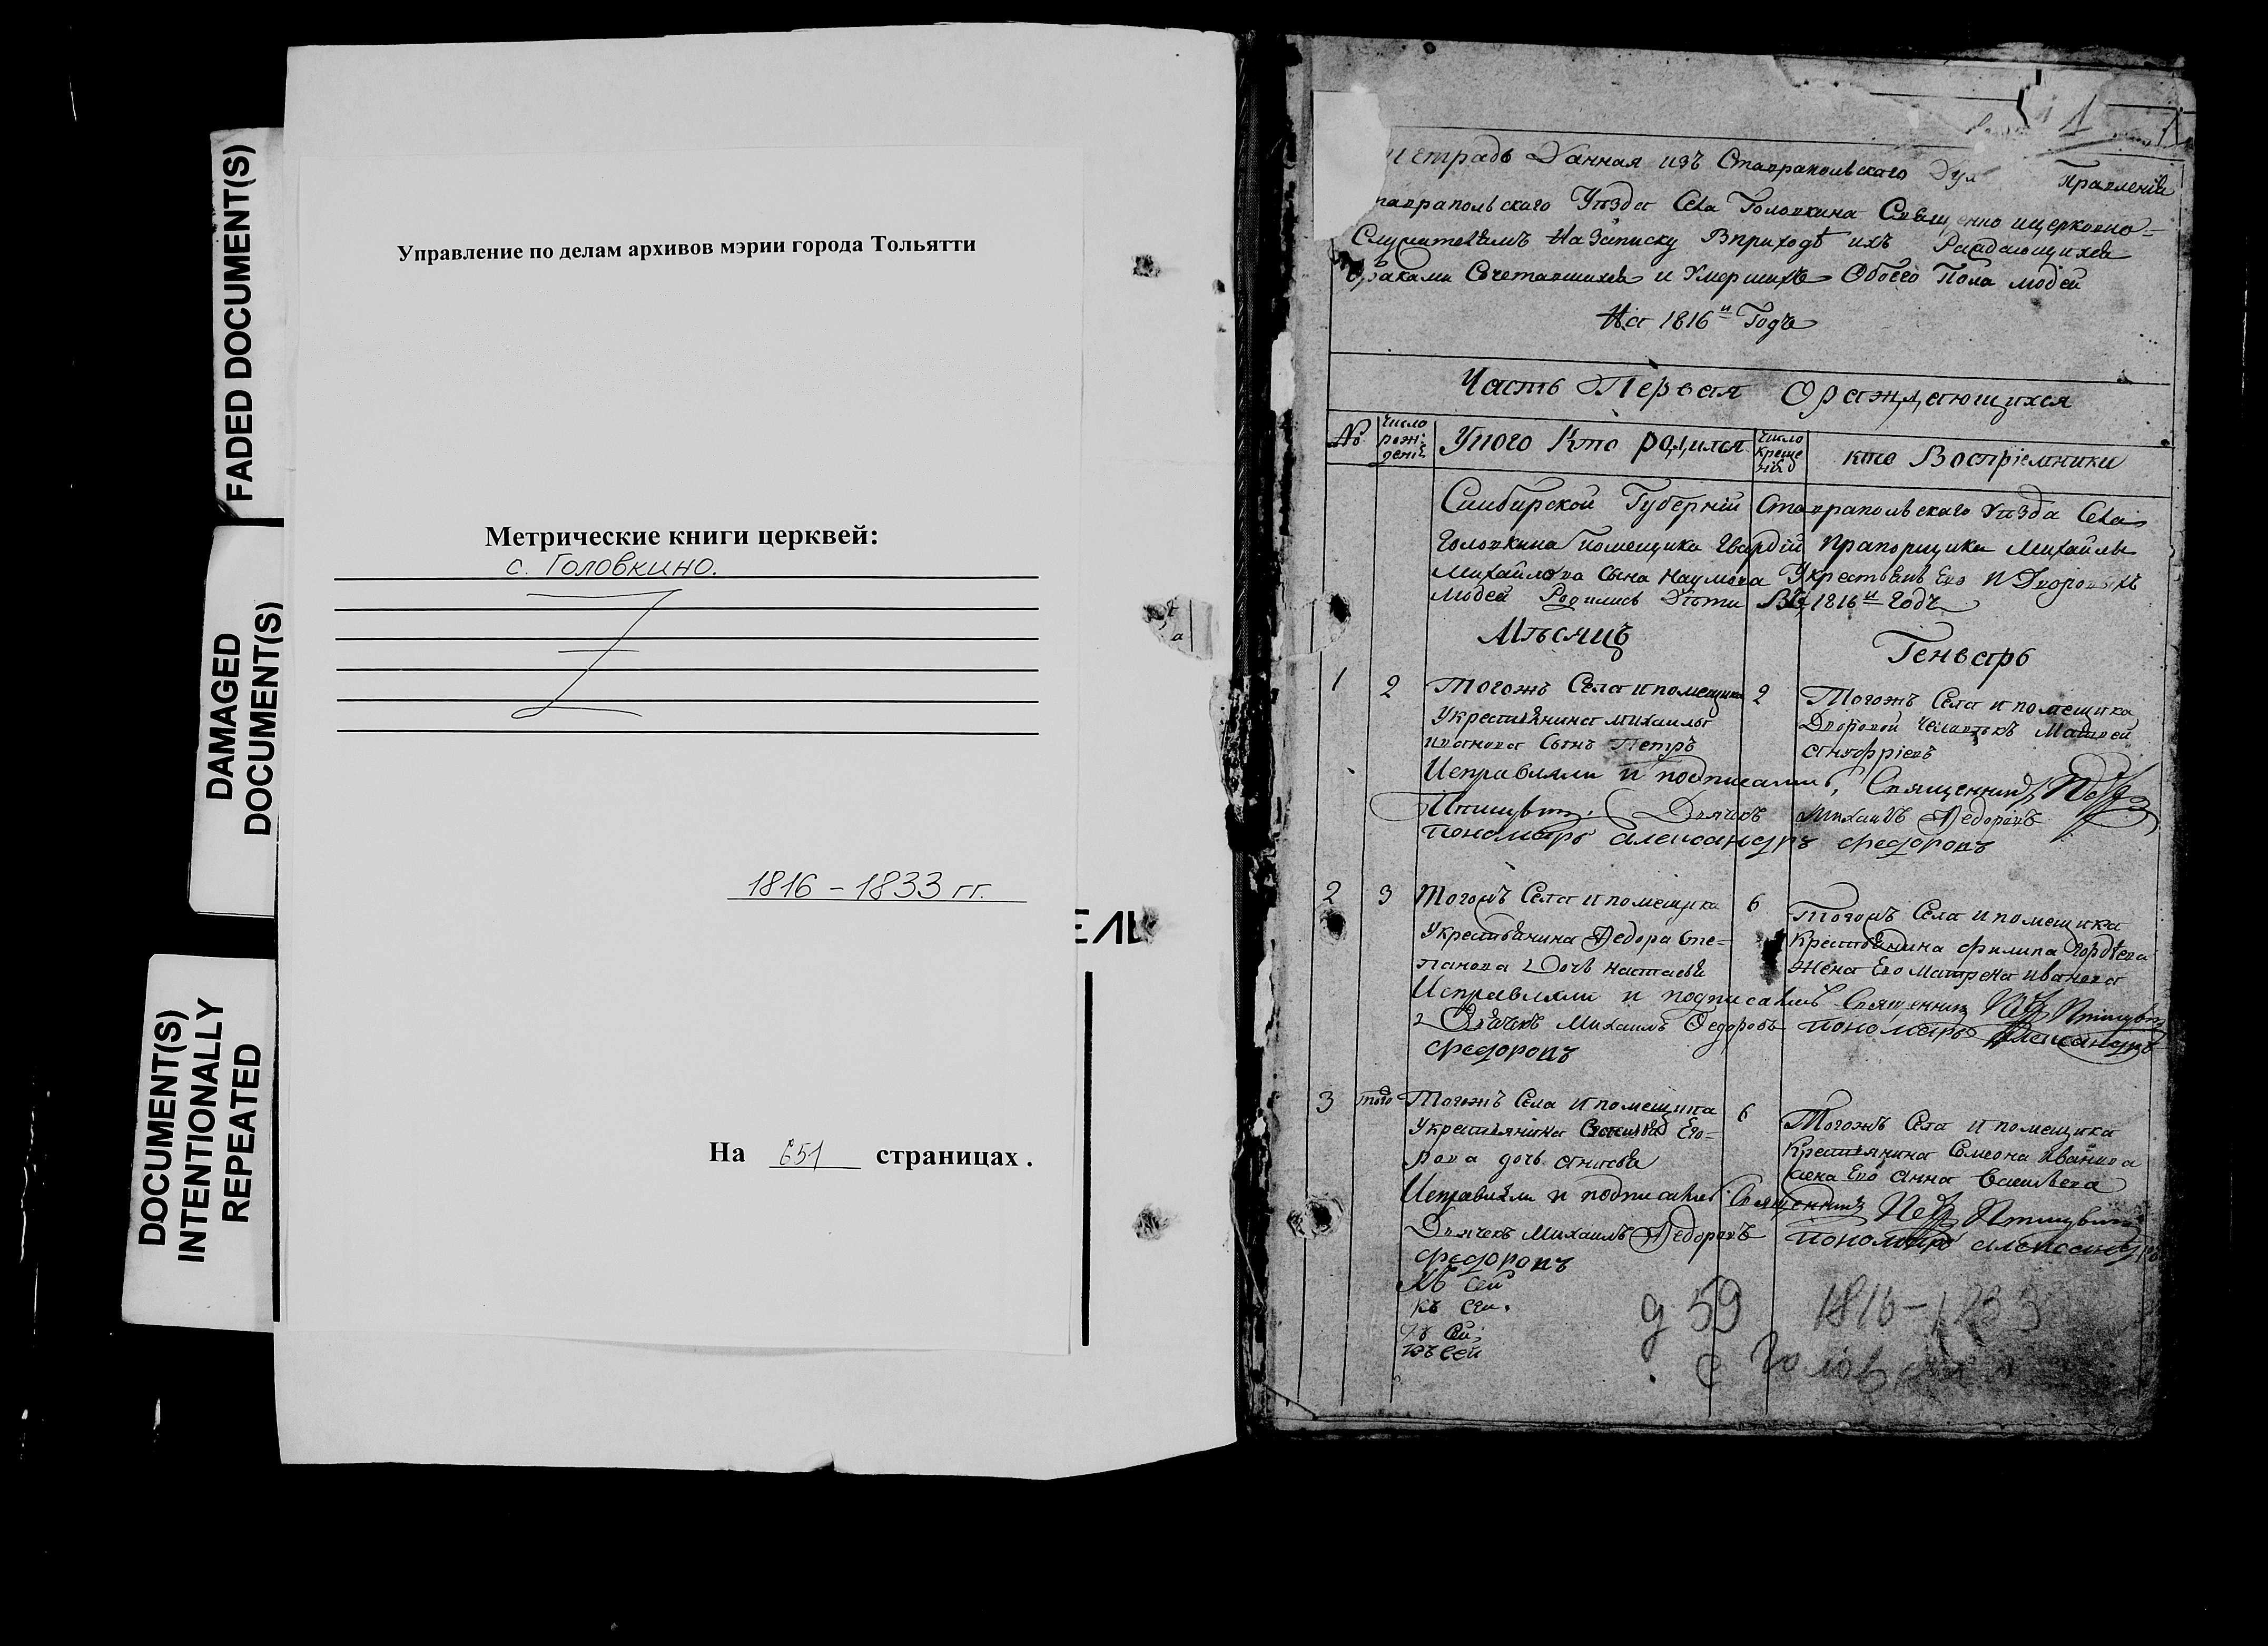 FADED DOCUMENT(S)
DAMAGED
DOCUMENT(S)
DOCUMENT(S)
INTENTIONALLY
REPEATED
Управление по делам архивов мэрии города Тольятти
Метрические книги церквей:
с. Головкино.
1816 – 1833 гг.
ЕЛЬ
На 651 страницах .
1
тетрадь Данная изъ Ставрапольскаго Правленія
тавропольскаго Уѣзда Села Головкина Священно ицерковно=
Служителямъ На Записку Вприходѣ ихъ Раждающихся
браками Сочетавшихся и Умершихъ Обоего Пола людей
На 1816й Годъ
Часть Первая О раждающихся
№
Число рожденія
Укого Кто родился
Число Крещенія
кто Воспріемники
Симбирской Губерніи Ставрапольскаго Уѣзда Села
Головкина Помещика Гвардіи Прапорщика Михайлы
Михайлова Сына Наумова Укрестьянъ Его И Дворовыхъ
Людей Родились Дѣти Въ 1816й Годъ
Мѣсяцъ Генварь
1 2 Тогожъ Села ипомещика
Укрестьянина михаилы
иванова Сынъ Петръ
2 Тогожъ Села и помещика
Дворовой Человѣкъ Матвей
анофріевъ
Исправляли и подписались, Священникъ
Дьячекъ Михаилъ Федоровъ
пономарь александръ федоровъ
2 3 Тогожъ Села ипомещика
Укрестьянина Федора Сте=
панова Дочь настасья
6 Тогожъ Села ипомещика
Крестьянина филипа Гордѣева
Жена Его Матрена иванова
Исправляли и подписались Священникъ
Дьячекъ Михаилъ Федоровъ пономарь Александръ
федоровъ
3 того Тогожъ Села ипомещика
Укрестьянина Его=
рова дочь
6 Тогожъ Села и помещика
Крестьянина Симеона Иванова
жена Его Анна Васильева
Исправляли и подписались Священникъ
Дьячекъ Михаилъ Федоровъ пономарь александръ
федоровъ
Къ сей
къ сей
Къ сей
къ сей
д 59 1816-1833
с Головкино